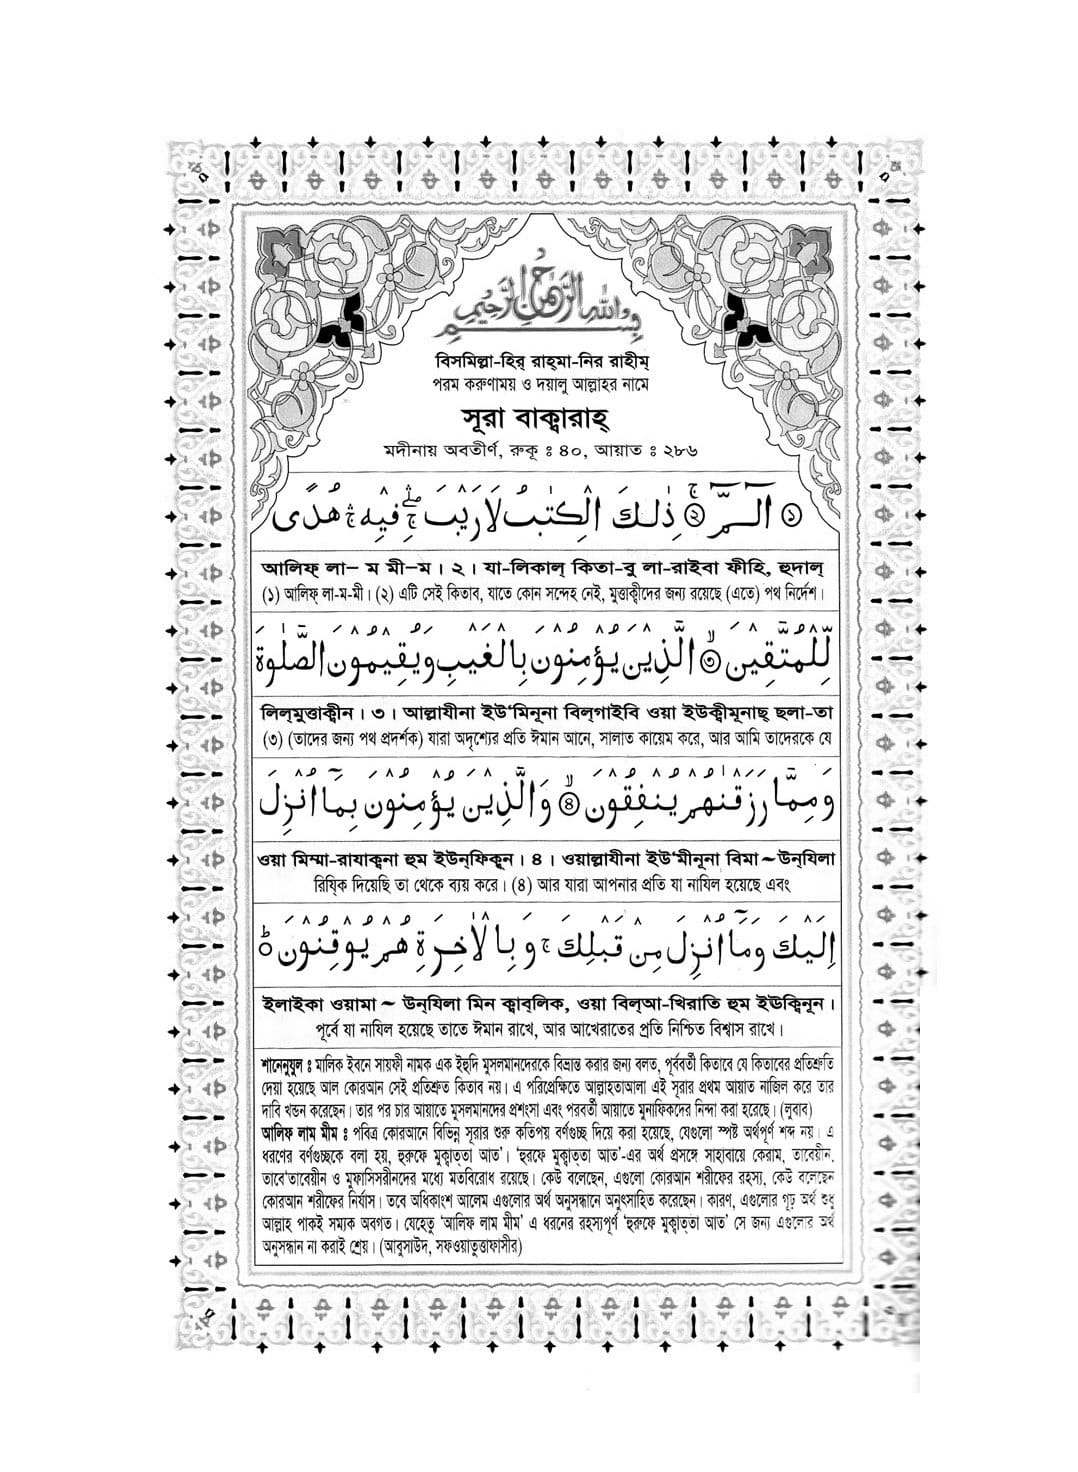 بسم الله الرحمن الرحيم
বিসমিল্লা-হির্ রাহ্মা-নির রাহীম্
পরম করুণাময় ও দয়ালু আল্লাহর নামে
সূরা বাক্বারাহ্
মদীনায় অবতীর্ণ, রুকূ ঃ ৪০, আয়াত ঃ ২৮৬
① الٓـمّٓ ۚ② ذٰلِكَ الْكِتٰبُ لَا رَيْبَ ۛۖۚ فِيْهِ ۛۚ هُدًى
আলিফ্ লা– ম মী–ম। ২। যা-লিকাল্ কিতা-বু লা-রাইবা ফীহি, হুদাল্
(১) আলিফ্ লা-ম-মী। (২) এটি সেই কিতাব, যাতে কোন সন্দেহ নেই, মুত্তাক্বীদের জন্য রয়েছে (এতে) পথ নির্দেশ।
لِّلْمُتَّقِيْنَ ۙ③ الَّذِيْنَ يُؤْمِنُوْنَ بِالْغَيْبِ وَيُقِيْمُوْنَ الصَّلٰوةَ
লিল্মুত্তাক্বীন। ৩। আল্লাযীনা ইউ‘মিনূনা বিল্গাইবি ওয়া ইউক্বীমূনাছ্ ছলা-তা
(৩) (তাদের জন্য পথ প্রদর্শক) যারা অদৃশ্যের প্রতি ঈমান আনে, সালাত কায়েম করে, আর আমি তাদেরকে যে
وَمِمَّا رَزَقْنٰهُمْ يُنْفِقُوْنَ ۙ④ وَالَّذِيْنَ يُؤْمِنُوْنَ بِمَآ اُنْزِلَ
ওয়া মিম্মা-রাযাক্বনা হুম ইউন্ফিকূন। ৪। ওয়াল্লাযীনা ইউ‘মীনূনা বিমা ~ উন্যিলা
রিযিক্ব দিয়েছি তা থেকে ব্যয় করে। (৪) আর যারা আপনার প্রতি যা নাযিল হয়েছে এবং
اِلَيْكَ وَمَآ اُنْزِلَ مِنْ قَبْلِكَ ۚ وَبِالْاٰخِرَةِ هُمْ يُوْقِنُوْنَ ؕ
ইলাইকা ওয়ামা ~ উন্যিলা মিন ক্বাব্লিক, ওয়া বিল্আ-খিরাতি হুম ইঊক্বিনূন।
পূর্বে যা নাযিল হয়েছে তাতে ঈমান রাখে, আর আখেরাতের প্রতি নিশ্চিত বিশ্বাস রাখে।
শানেনুযুল ঃ মালিক ইবনে সায়ফী নামক এক ইহুদি মুসলমানদেরকে বিভ্রান্ত করার জন্য বলত, পূর্ববর্তী কিতাবে যে কিতাবের প্রতিশ্রুতি
দেয়া হয়েছে আল কোরআন সেই প্রতিশ্রুত কিতাব নয়। এ পরিপ্রেক্ষিতে আল্লাহতাআলা এই সূরার প্রথম আয়াত নাজিল করে তার
দাবি খন্ডন করেছেন। তার পর চার আয়াতে মুসলমানদের প্রশংসা এবং পরবর্তী আয়াতে মুনাফিকদের নিন্দা করা হয়েছে। (লুবাব)
আলিফ লাম মীম ঃ পবিত্র কোরআনে বিভিন্ন সূরার শুরু কতিপয় বর্ণগুচ্ছ দিয়ে করা হয়েছে, যেগুলো স্পষ্ট অর্থপূর্ণ শব্দ নয়। এ
ধরণের বর্ণগুচ্ছকে বলা হয়, হুরুফে মুক্বাত্তা আত’। ‘হুরফে মুক্বাত্তা আত’-এর অর্থ প্রসঙ্গে সাহাবায়ে কেরাম, তাবেয়ীন,
তাবে‘তাবেয়ীন ও মুফাসিসরীনদের মধ্যে মতবিরোধ রয়েছে। কেউ বলেছেন, এগুলো কোরআন শরীফের রহস্য, কেউ বলেছেন
কোরআন শরীফের নির্যাস। তবে অধিকাংশ আলেম এগুলোর অর্থ অনুসন্ধানে অনুৎসাহিত করেছেন। কারণ, এগুলোর গূঢ় অর্থ শুধু
আল্লাহ পাকই সম্যক অবগত। যেহেতু ‘আলিফ লাম মীম’ এ ধরনের রহস্যপূর্ণ ‘হুরুফে মুক্বাত্তা আত’ সে জন্য এগুলোর অর্থ
অনুসন্ধান না করাই শ্রেয়। (আবুসাউদ, সফওয়াতুত্তাফাসীর)